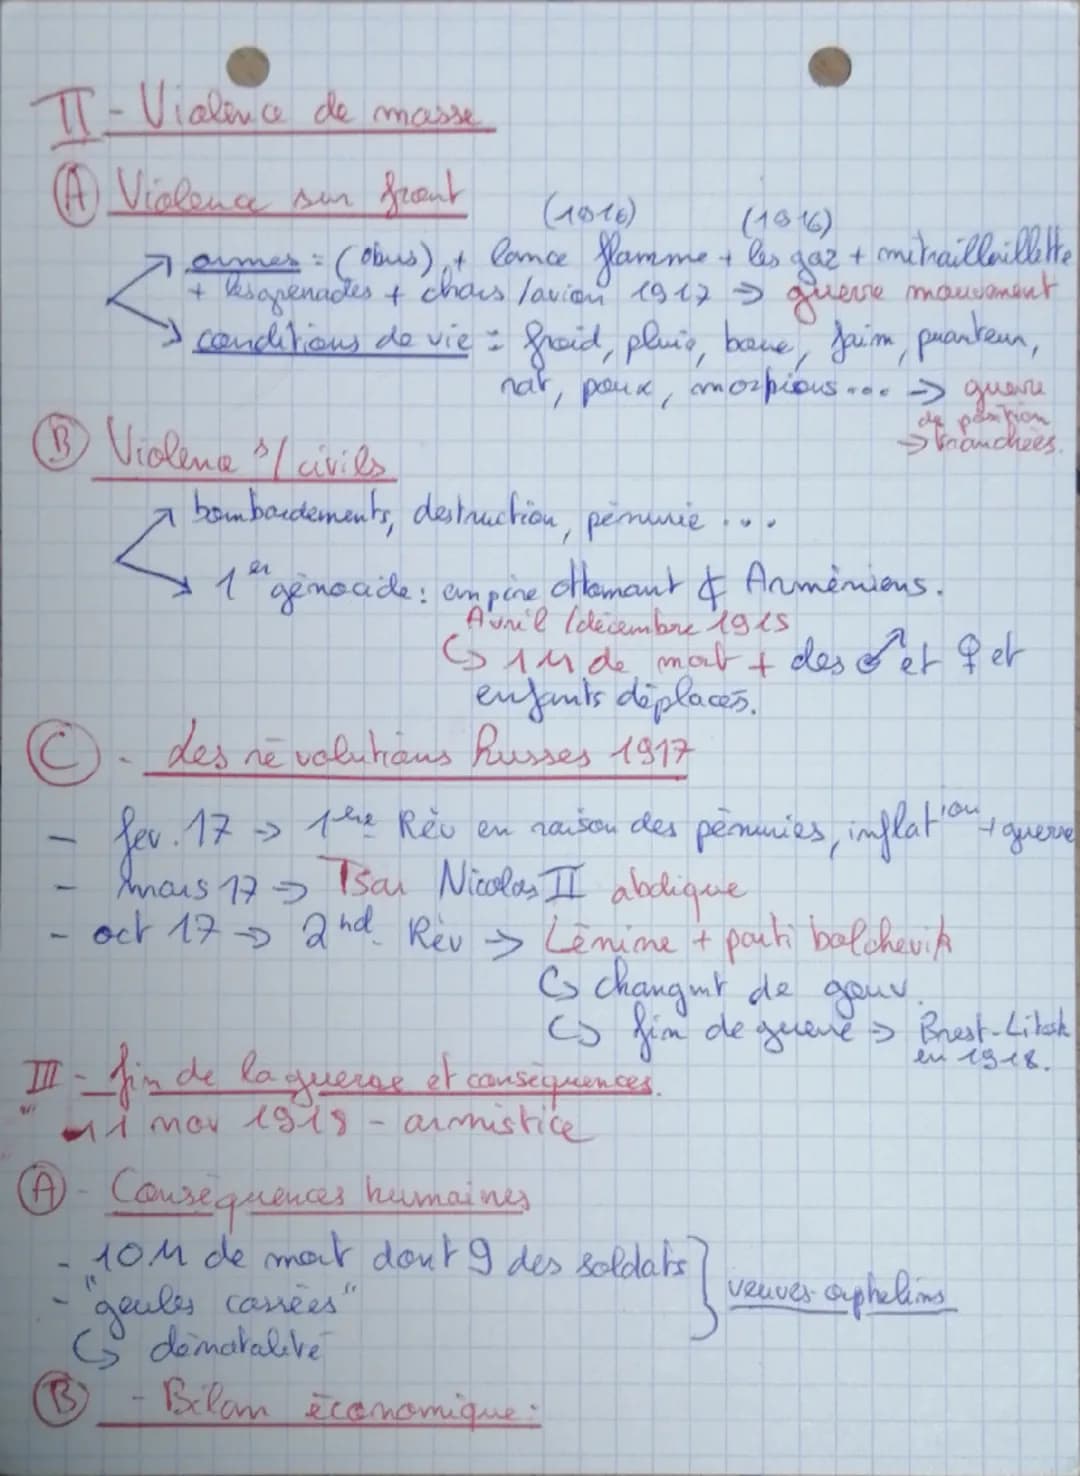 II - Violence de masse
A Violence sur front
(1916) (1916)
armes = (obus) + lance flamme + les gaz + mitrailleillette
+ les grenades + chars / avion 1917 → guerre mouvement
conditions de vie = froid, pluie, boue, faim, puanteur,
rat, poux, morpions ... → guerre
de position
→ tranchées.
B Violence s/ civils
bombardements, destruction, pénurie ...
1er génocide : empire ottomant & Arméniens.
Avril / décembre 1915
↳ 1M de mort + des ♂ et ♀ et
enfants déplacés.
C - Les révolutions Russes 1917
- fev. 17 → 1ère Rév en raison des pénuries, inflation + guerre
- mars 17 → Tsar Nicolas II abdique
- oct 17 → 2nd Rév → Lénine + parti bolchevik
↳ changmt de gouv.
↳ fin de guerre → Brest-Litosk
en 1918.
III - fin de la guerre et conséquences.
11 nov 1918 - armistice
A - Conséquences humaines
- 10M de mort dont 9 des soldats
- "geules cassées"
veuves-orphelins
↳ dénatalité
B - Bilan économique :